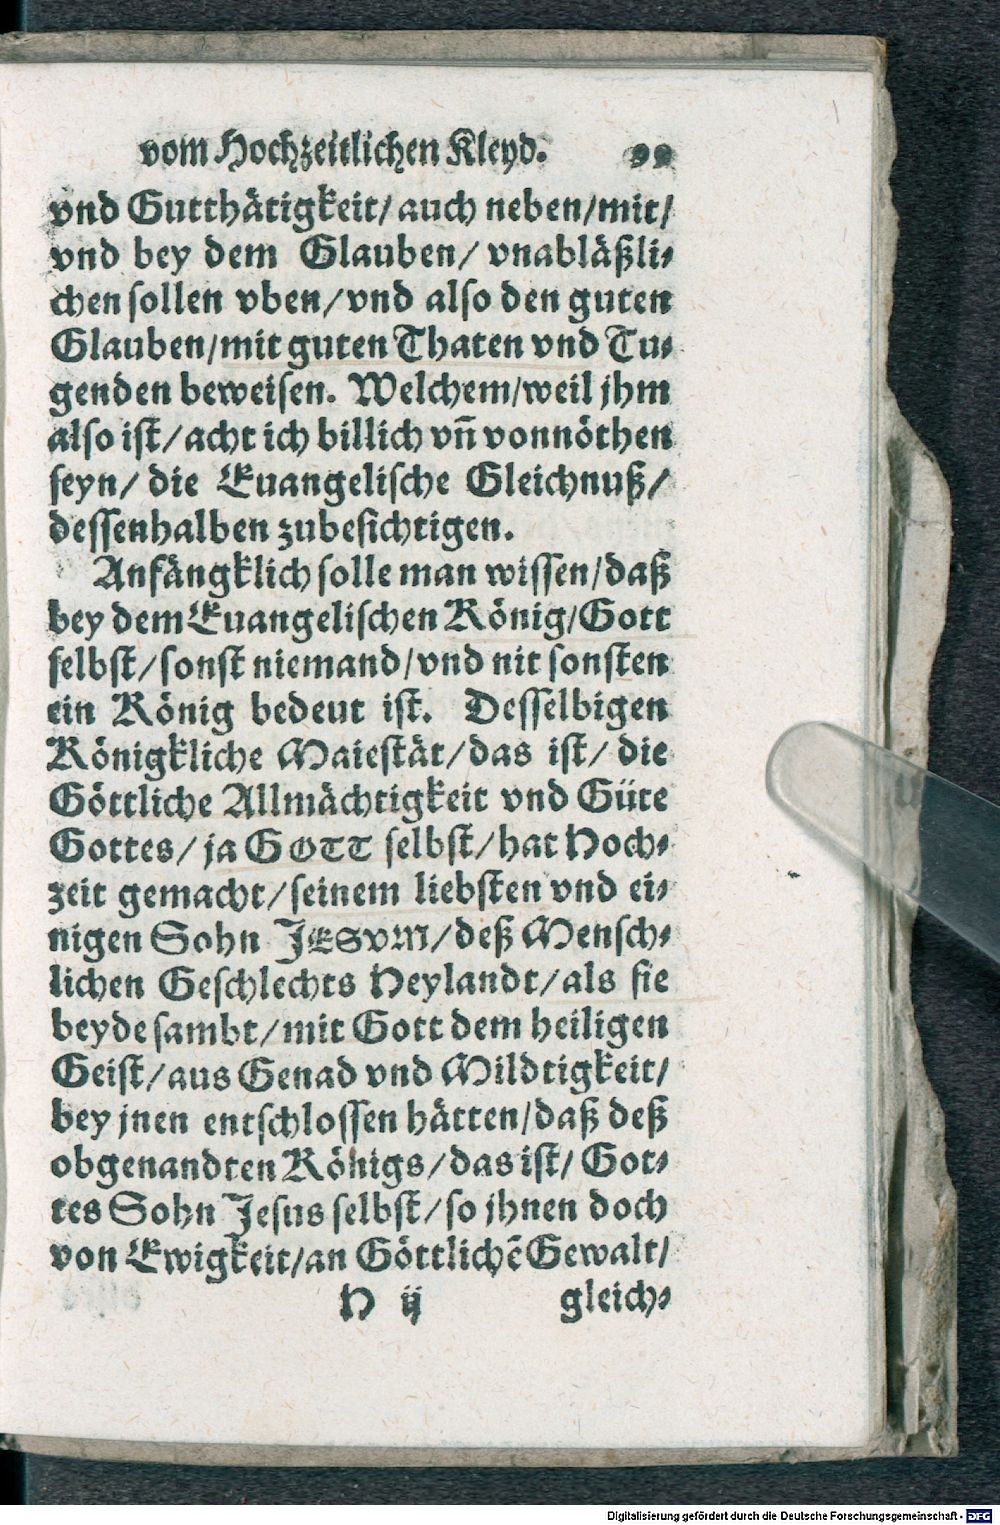 vom Hochzeitlichen Kleyd. 99
vnd Gutthätigkeit/ auch neben/mit/
vnd bey dem Glauben/ vnabläßli⸗
chen sollen vben/vnd also den guten
Glauben/mit guten Thaten vnd Tu⸗
genden beweisen. Welchem/weil jhm
also ist/acht ich billich vn̄ vonnöthen
seyn/ die Euangelische Gleichnuß/
dessenhalben zubesichtigen.
Anfängklich solle man wissen/daß
bey dem Euangelischen König/Gott
selbst/sonst niemand/vnd nit sonsten
ein König bedeut ist. Desselbigen
Königkliche Maiestät/das ist/ die
Göttliche Allmächtigkeit vnd Güte
Gottes/ ja GOTT selbst/hat Hoch⸗
zeit gemacht/seinem liebsten vnd ei⸗
nigen Sohn JESVM/deß Mensch⸗
lichen Geschlechts Heylandt/als sie
beyde sambt/mit Gott dem heiligen
Geist/aus Genad vnd Mildtigkeit/
bey jnen entschlossen hätten/daß deß
obgenandten Königs/das ist/ Got⸗
tes Sohn Jesus selbst/so jhnen doch
von Ewigkeit/an Göttlichē Gewalt/
H ij gleich⸗
Digitalisierung gefördert durch die Deutsche Forschungsgemeinschaft - DFG